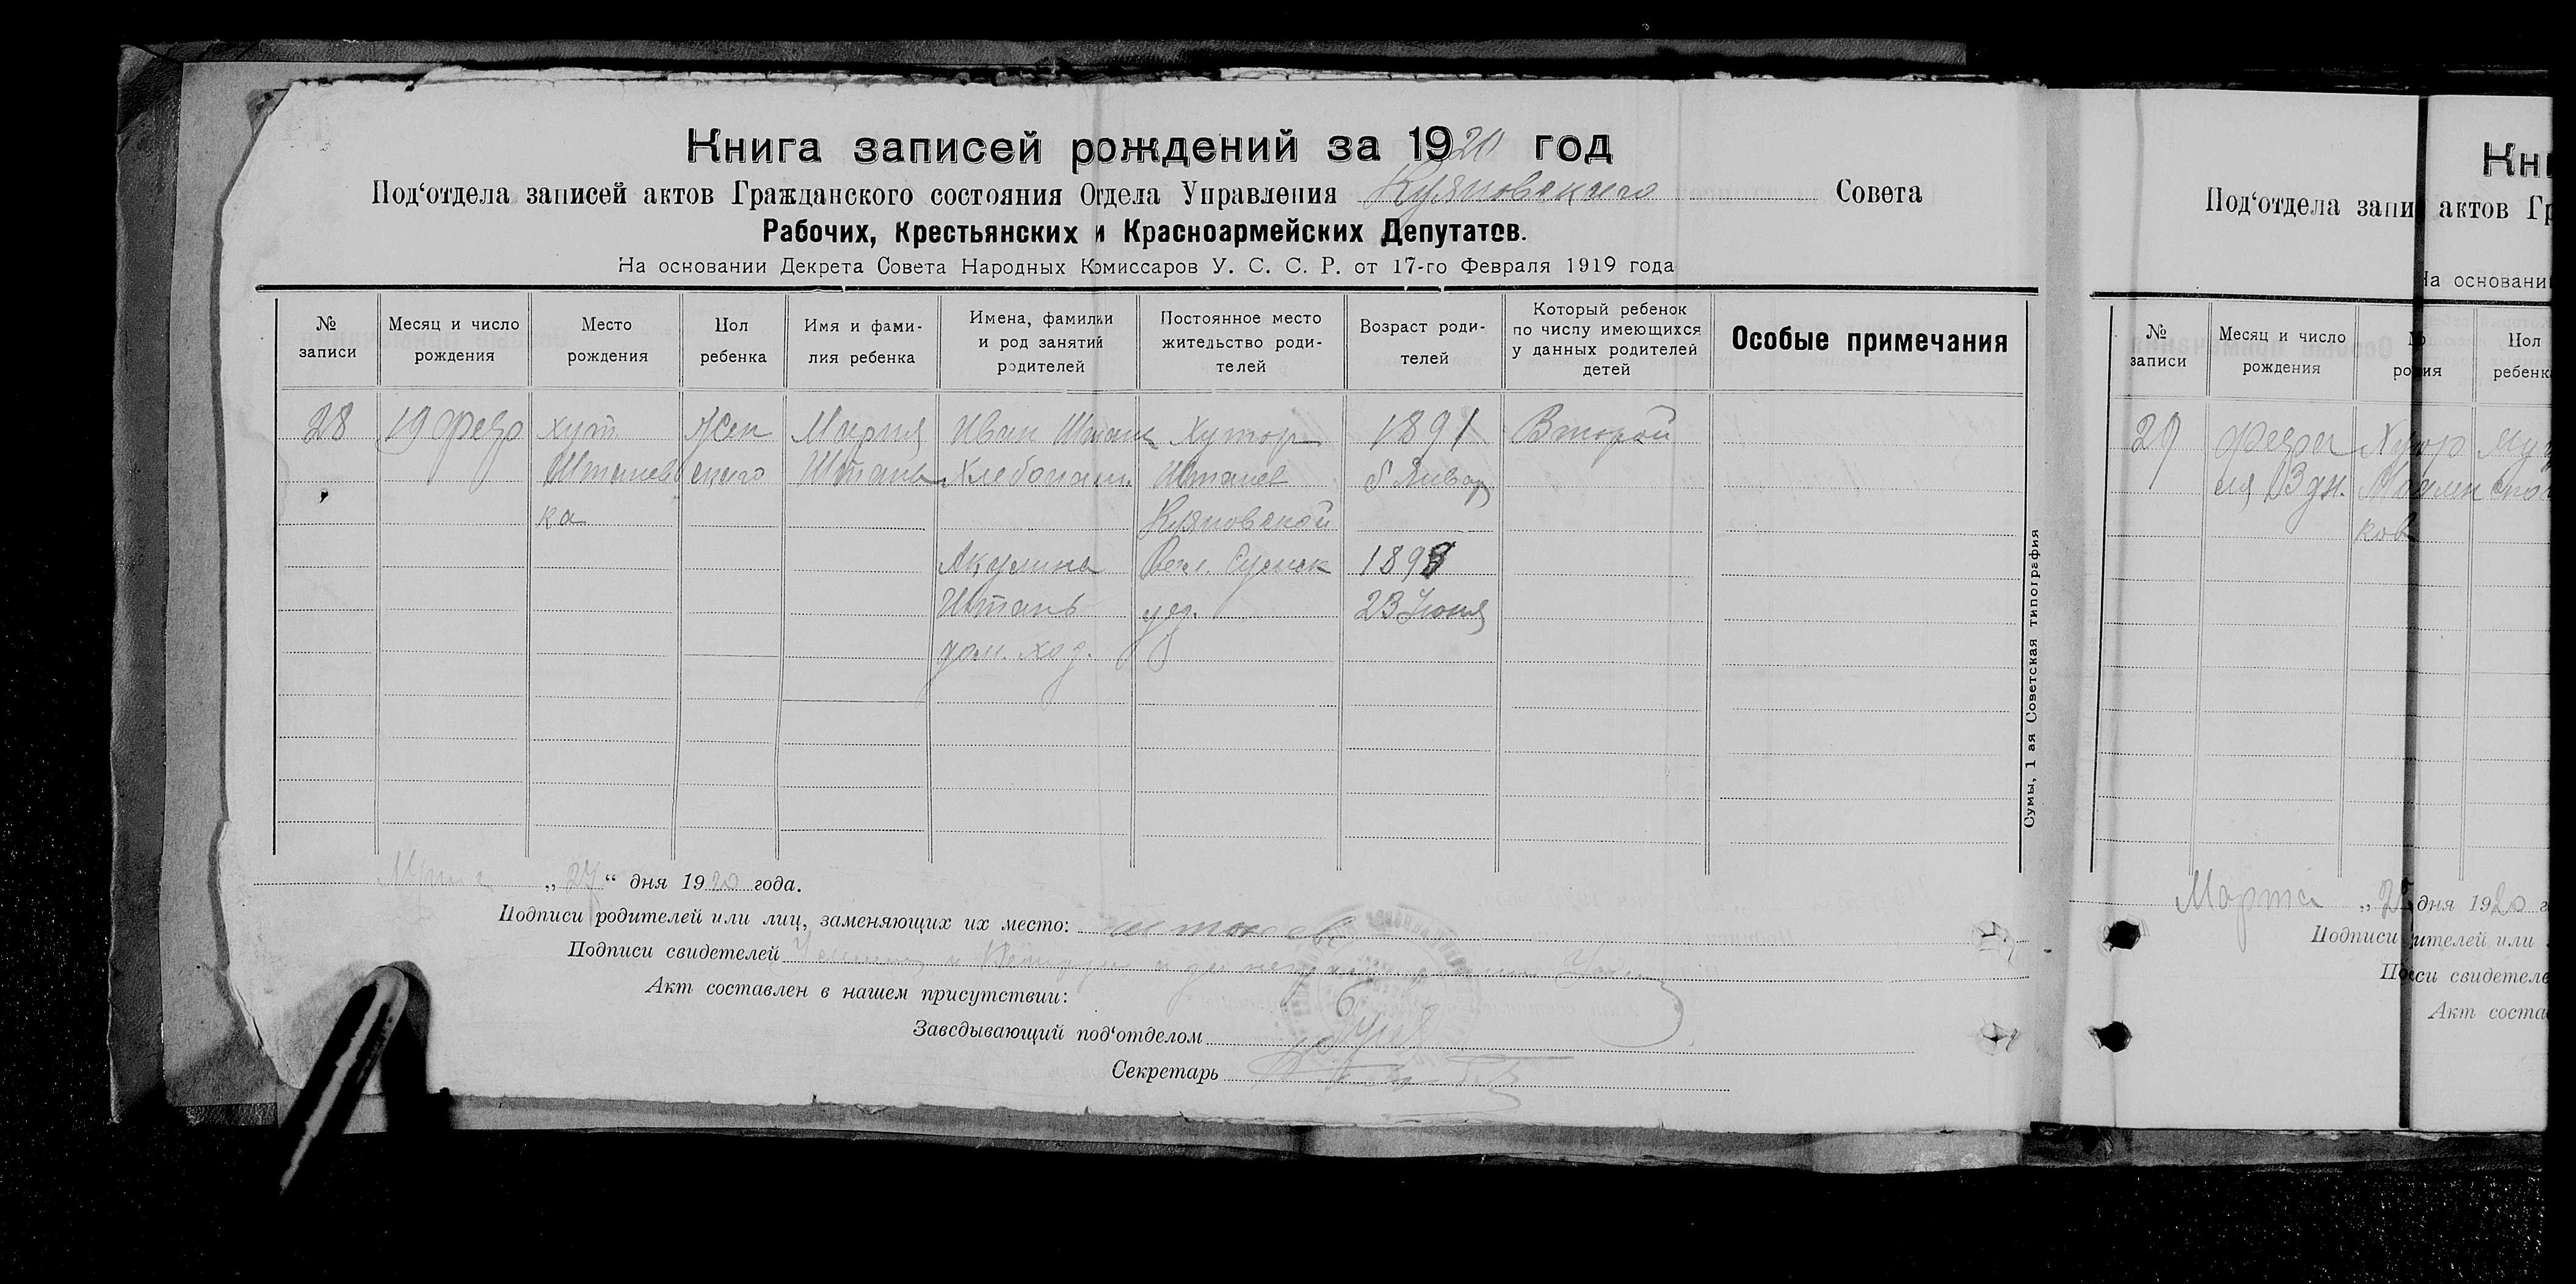 Книга записей рождений за 1920 год
Под‘отдела записей актов Гражданского состояния Отдела Управления Кияновского Совета
Рабочих, Крестьянских и Красноармейских Депутатов.
На основании Декрета Совета Народных Комиссаров У. С. С. Р. от 17-го Февраля 1919 года
№ записи
Месяц и число рождения
Место рождения
Пол ребенка
Имя и фами- лия ребенка
Имена, фамилии и род занятий родителей
Постоянное место жительство роди- телей
Возраст роди- телей
Который ребенок по числу имеющихся у данных родителей детей
Особые примечания
28 19 Февр хут Жен Мария Иван Штань Хутор 1891 Второй
Штанев ского Штань Хлебопаш. Штанев 5 Январ
ка Кияновской
Акулина Вол. Сумск 1898
Штань уез. 23 Июня
дом. ход.
Сумы, 1 ая Советская типография
Марта „27“ дня 1920 года.
Подписи родителей или лиц, заменяющих их место:
Подписи свидетелей
Акт составлен в нашем присутствии:
Заведывающий под‘отделом
Секретарь
Кни
Под‘отдела запи актов Гр
На основании
№ записи
Месяц и число рождения
Пол ребенк
29 Февра Хутор Муж
ля 13 дн.
ков
Марта дня 1920 г
Подписи ителей или
свидетеле
Акт соста